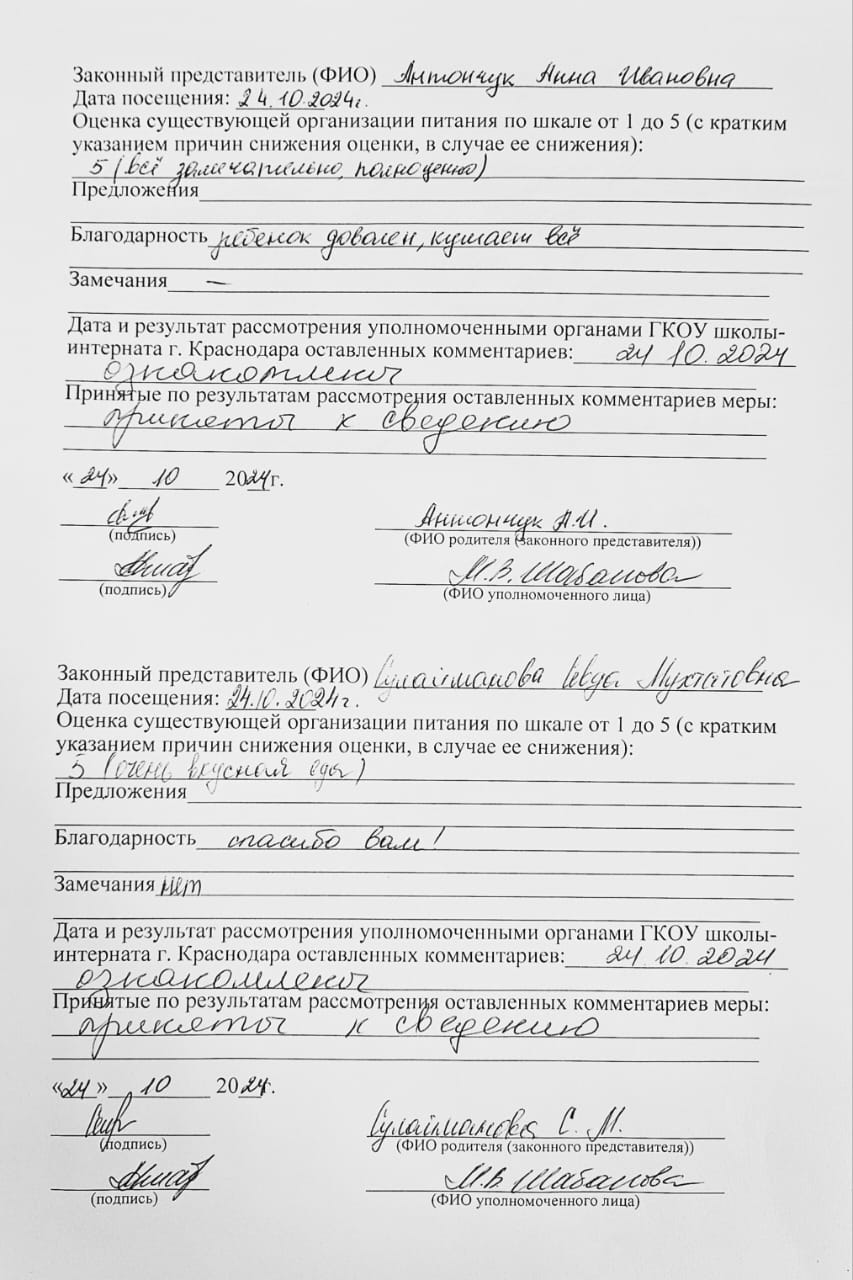 Законный представитель (ФИО) Антончук Анна Ивановна
Дата посещения: 24.10.2024г.
Оценка существующей организации питания по шкале от 1 до 5 (с кратким
указанием причин снижения оценки, в случае ее снижения):
5 (всё замечательно, полноценно)
Предложения
Благодарность ребенок доволен, кушает всё
Замечания —
Дата и результат рассмотрения уполномоченными органами ГКОУ школы-
интерната г. Краснодара оставленных комментариев: 24 10. 2024
ознакомлены
Принятые по результатам рассмотрения оставленных комментариев меры:
приняты к сведению
«24» 10 2024г.
Антончук А.И.
(подпись) (ФИО родителя (законного представителя))
М.В. Шабанова
(подпись) (ФИО уполномоченного лица)
Законный представитель (ФИО) Сулайманова
Дата посещения: 24.10.2024г.
Оценка существующей организации питания по шкале от 1 до 5 (с кратким
указанием причин снижения оценки, в случае ее снижения):
5 (очень вкусная еда)
Предложения
Благодарность спасибо вам!
Замечания нет
Дата и результат рассмотрения уполномоченными органами ГКОУ школы-
интерната г. Краснодара оставленных комментариев: 24.10.2024
ознакомлены
Принятые по результатам рассмотрения оставленных комментариев меры:
приняты к сведению
«24» 10 2024г.
Сулайманова С. М.
(подпись) (ФИО родителя (законного представителя))
М.В Шабанова
(подпись) (ФИО уполномоченного лица)